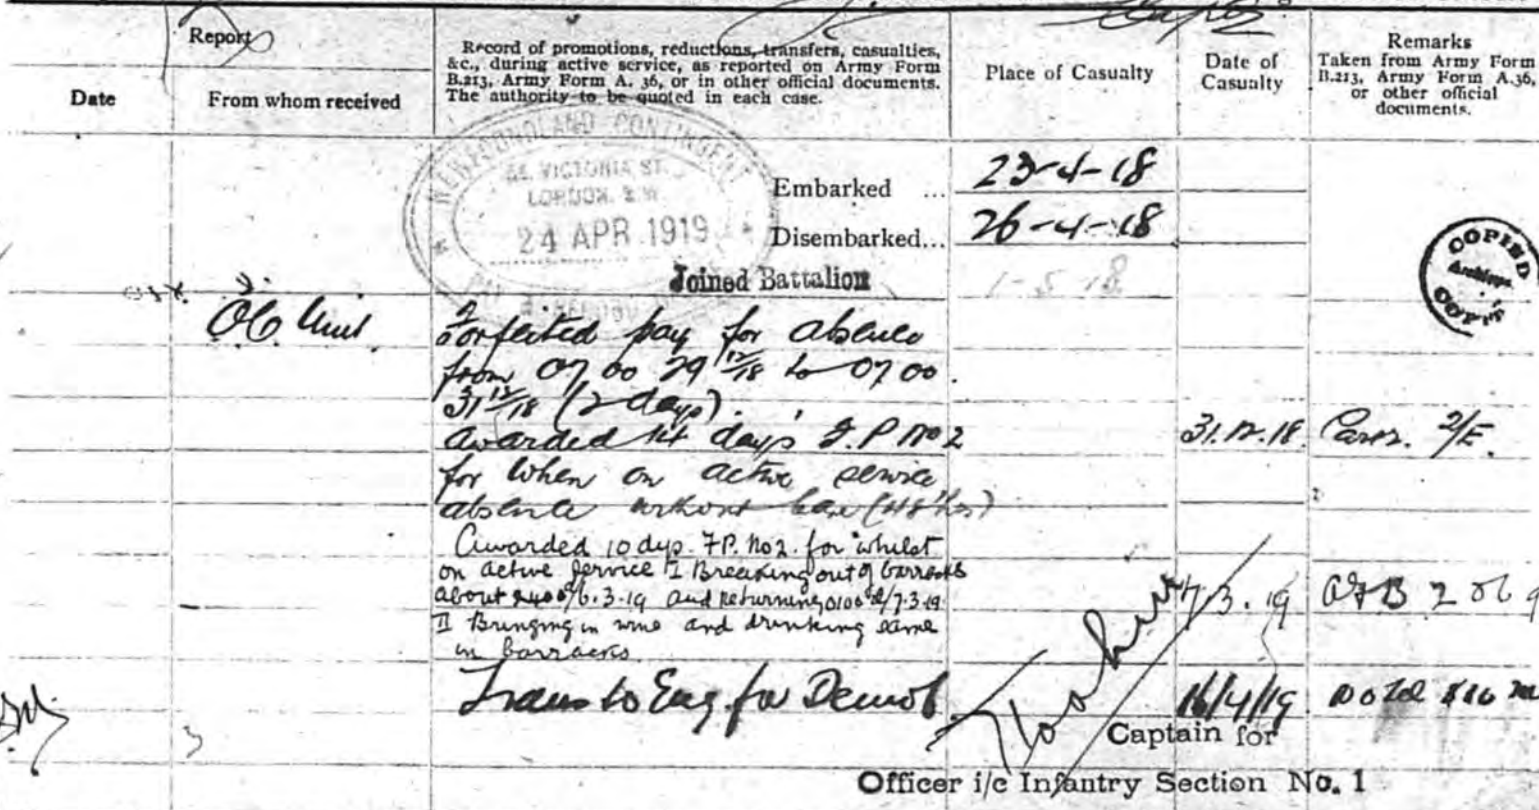 Report
Date
From whom received
Record of promotions, reductions, transfers, casualties,
&c., during active service, as reported on Army Form
B.213, Army Form A. 36, or in other official documents.
The authority to be quoted in each case.
Place of Casualty
Date of
Casualty
Remarks
Taken from Army Form
B.213, Army Form A.36,
or other official
documents.
NEWFOUNDLAND CONTINGENT
VICTORIA ST.
LONDON. S.W.
24 APR 1919
Embarked ... 23-4-18
Disembarked... 26-4-18
Joined Battalion 1-5-18
COPIED
Archives
OC Unit
Forfeited pay for absence
from 07 00 29/12/18 to 07 00
31/12/18 (2 days).
Awarded 14 days F.P No 2 31.12.18
for When on active service
absence without leave (48 hrs)
Awarded 10 dys. F.P. No 2. for whilst
on active service I Breaking out of barracks
about 2400 6.3.19 and returning 0100 7.3.19
II Bringing in wine and drinking same
in barracks
7/3.19
Trans to Eng. for Demob
16/4/19
Captain for
Officer i/c Infantry Section No. 1